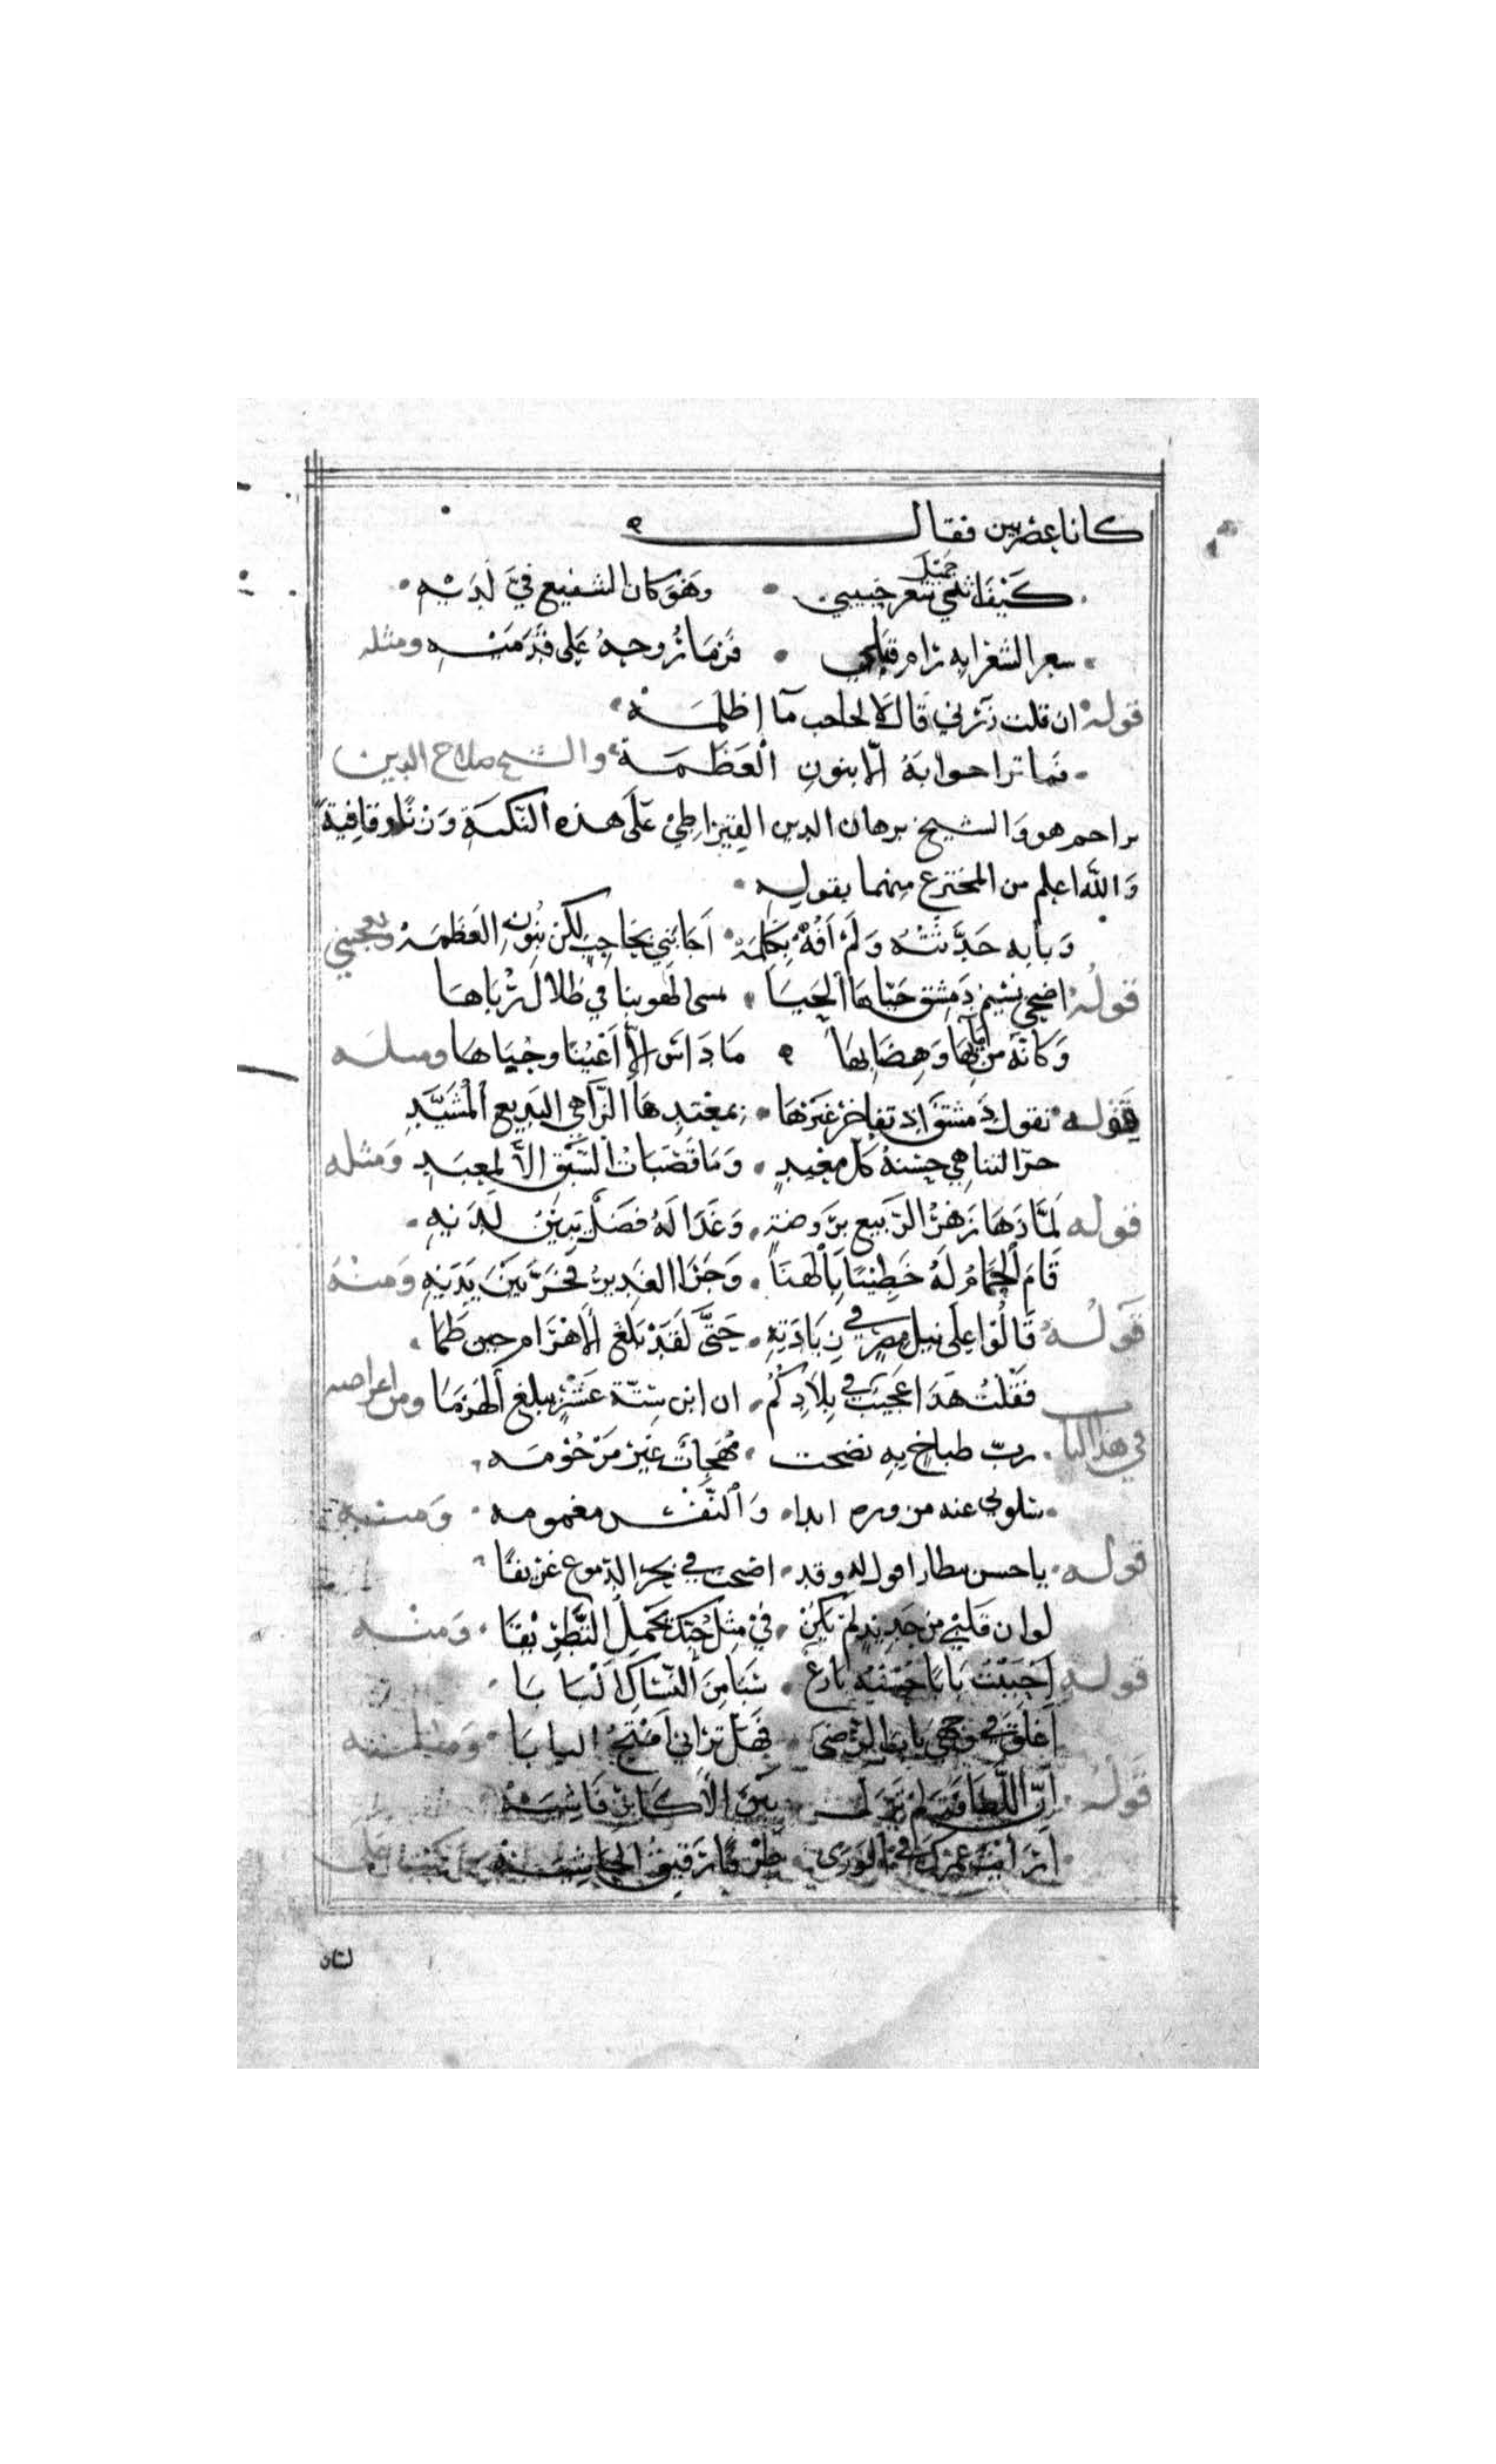 كانا عصريين فقال
كَيْفَ اثني شعر حبيبي • وهو كان الشفيع في لديه
سعر الشعر انه زاه قبلي • فرمَا رُوحِهُ عَلى قدمَيه ومثله
قوله ان قلت زرني قال لا لحاجب ما اظلمه
فما ترا جوابه الا بنون العَظَمَة والشيخ صلاح الدين
تزاحم هو والشيخ برهان الدين القِيْراطِيْ عَلَى هذه النكتة وزنا وقافية
والله اعلم من المخترع منهما بقوله
وَبابه حَدَّثتُهُ وَلَمْ افُهْ بِكَلِمَة • اجَابَنِي بحَاجِب لكن بنُونِ العَظَمَة ويعجبني
قوله اضحى نسيم دمشق حيّاها الحيا • يمسى الهوينا في ظلال رُبَاهَا
وَكانهُ من مائها وَهِضَابِهَا • مَا دَاسَ الا اعْيُنا وجبَاهَا ومثله
قوله تقول دمشق اذ تفاخر غيرها • بمعبدها الزاهي البديع المُشَيَّدِ
جرا لتناهي حسنه كل معبد • وَمَا قصَبَاتُ السّبق الا لمعبد ومثله
قوله لمّا زهَا زهرُ الرّبيع برَوضة • وَغَدَا لهُ فضلٌ يبينُ لديه
قامَ الحمامُ لهُ خطيبًا بالهنا • وَجَرا الغديرُ فخرَّ بَينَ يدَيه ومنه
قوله قالوُا علَى نيل مصر في زيادَته • حتَّى لقد بَلغ الاهرَام حين طمَا
فقلت هذا عجيب في بِلادكُم • ان ابن ستة عَشر يبلغ الهرَمَا ومن اغراضه
في هذا الباب • رب طباخ به نضجت • مُهَجَات غير مَرْحُوْمَه
سلوتي عنه مزوره ابدا • وَالنَّفْس مغمومه • ومنه
قوله • ياحسن بيطار اقول له وقد • اضحت في بحر الدموع غريقا
لو ان قَلبي من حديد لم يكن • في مثل حبك يحمل التَّطريقا • ومنه
قوله احْبَبْتُ بَابًا حُسْنُهُ بارع • سَبَا من النسّاك الْبَابَا
اغلق في وجهي باب الرضى • فهَل ترَاني افتح البابَا • ومثله
قوله • انّ اللطافة لم تزل • بين الاكابر فاشيَه
ارايت عمرك في الورى • طرفا رقيق الحاشيَه
لسان